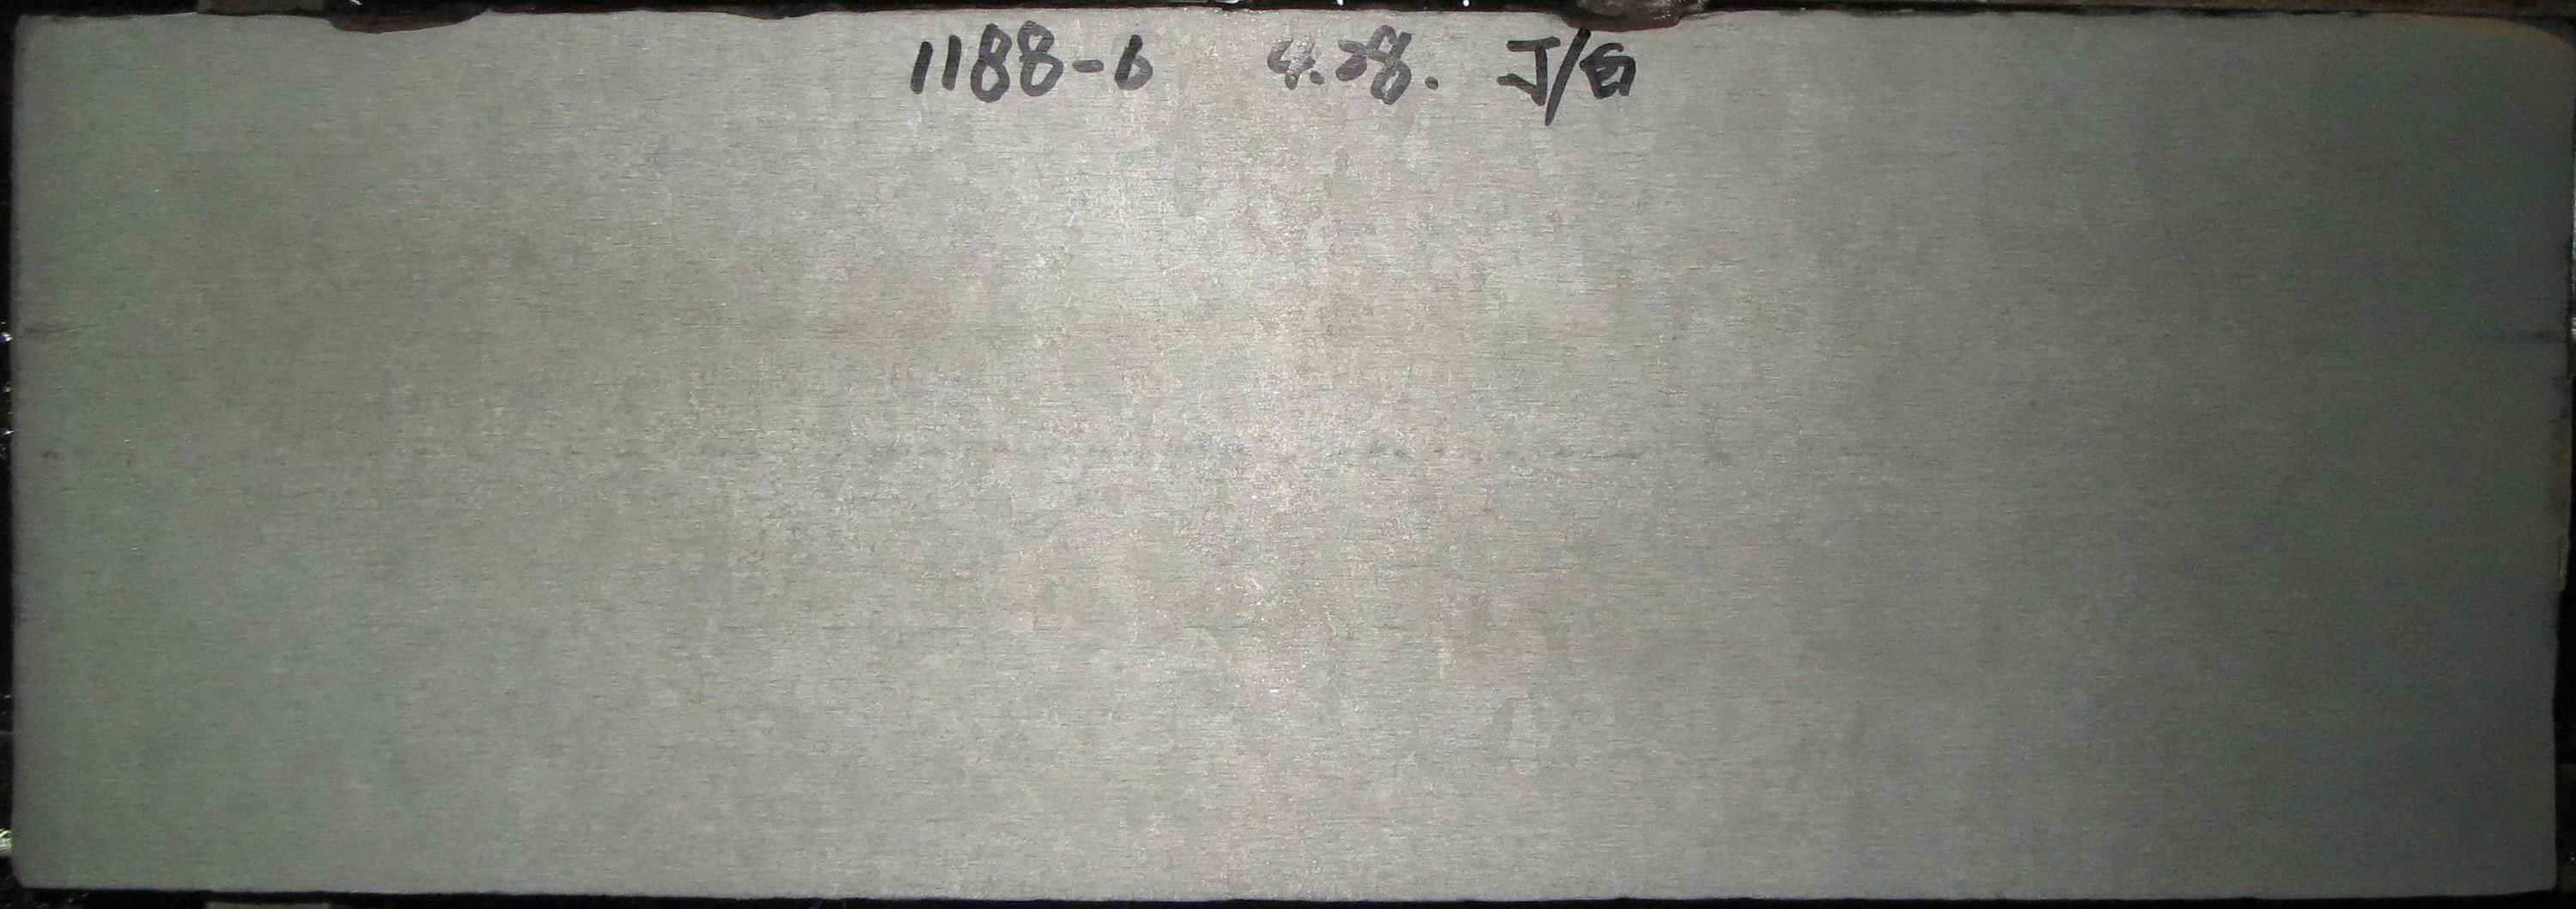 1188-6 4.28. J/白